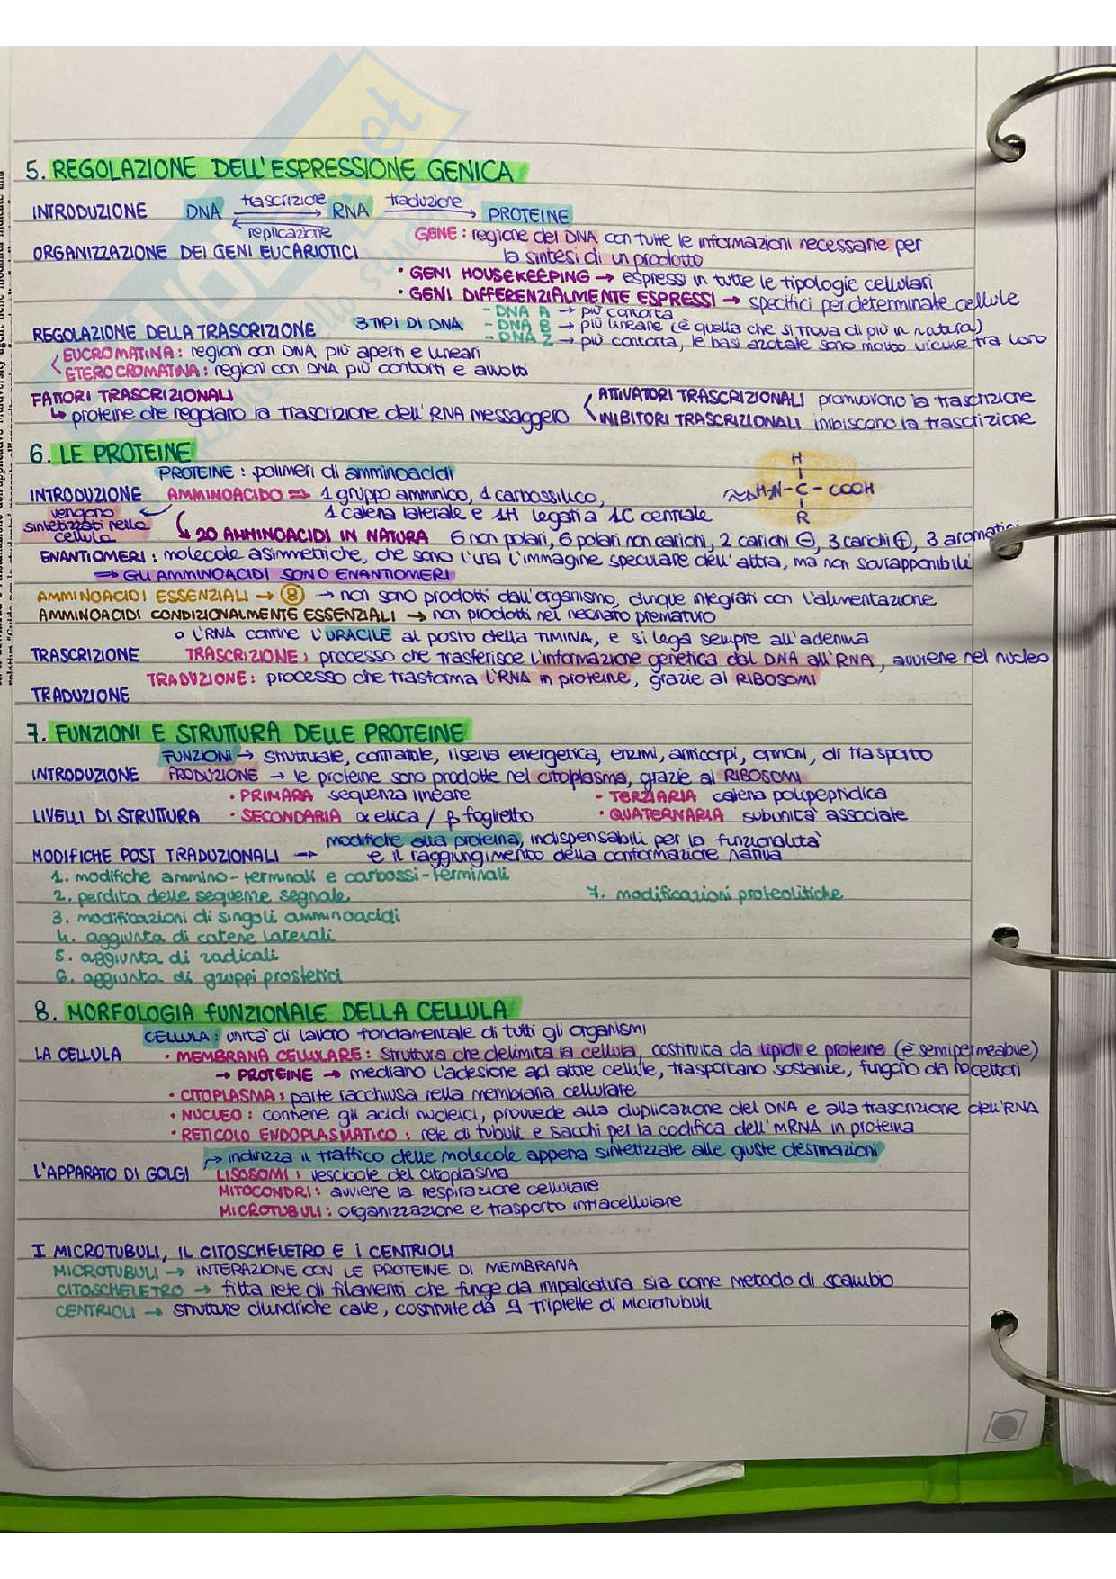 5. REGOLAZIONE DELL'ESPRESSIONE GENICA
INTRODUZIONE DNA trascrizione RNA traduzione PROTEINE
replicazione
GENE: regione del DNA con tutte le informazioni necessarie per
la sintesi di un prodotto
ORGANIZZAZIONE DEI GENI EUCARIOTICI
• GENI HOUSEKEEPING → espressi in tutte le tipologie cellulari
• GENI DIFFERENZIALMENTE ESPRESSI → specifici per determinate cellule
REGOLAZIONE DELLA TRASCRIZIONE 3 TIPI DI DNA
- DNA A → più contorta
- DNA B → più lineare (è quella che si trova di più in natura)
- DNA Z → più contorta, le basi azotate sono molto vicine tra loro
EUCROMATINA: regioni con DNA più aperti e lineari
ETEROCROMATINA: regioni con DNA più contorti e avvolti
FATTORI TRASCRIZIONALI
↳ proteine che regolano la trascrizione dell'RNA messaggero
ATTIVATORI TRASCRIZIONALI promuovono la trascrizione
INIBITORI TRASCRIZIONALI inibiscono la trascrizione
6. LE PROTEINE
PROTEINE: polimeri di amminoacidi
INTRODUZIONE AMMINOACIDO ⇒ 1 gruppo amminico, 1 carbossilico,
1 catena laterale e 1H legati a 1C centrale
H
H₂N - C - COOH
R
vengono
sintetizzati nella
cellula
↳ 20 AMMINOACIDI IN NATURA 6 non polari, 6 polari non carichi, 2 carichi ⊖, 3 carichi ⊕, 3 aromatici
ENANTIOMERI: molecole asimmetriche, che sono l'una l'immagine speculare dell'altra, ma non sovrapponibili
⇒ GLI AMMINOACIDI SONO ENANTIOMERI
AMMINOACIDI ESSENZIALI → 8 → non sono prodotti dall'organismo, dunque integrati con l'alimentazione
AMMINOACIDI CONDIZIONALMENTE ESSENZIALI → non prodotti nel neonato prematuro
o L'RNA contine l'URACILE al posto della TIMINA, e si lega sempre all'adenina
TRASCRIZIONE TRASCRIZIONE: processo che trasferisce l'informazione genetica dal DNA all'RNA, avviene nel nucleo
TRADUZIONE: processo che trasforma l'RNA in proteine, grazie ai RIBOSOMI
TRADUZIONE
7. FUNZIONI E STRUTTURA DELLE PROTEINE
FUNZIONI → strutturale, contrattile, riserva energetica, enzimi, anticorpi, ormoni, di trasporto
INTRODUZIONE PRODUZIONE → le proteine sono prodotte nel citoplasma, grazie ai RIBOSOMI
• PRIMARA sequenza lineare - TERZIARIA catena polipeptidica
LIVELLI DI STRUTTURA • SECONDARIA α elica / β foglietto • QUATERNARIA subunità associate
MODIFICHE POST TRADUZIONALI → modifiche alla proteina, indispensabili per la funzionalità
e il raggiungimento della conformazione nativa
1. modifiche ammino-terminali e carbossi-terminali
2. perdita delle sequenze segnale 7. modificazioni proteolitiche
3. modificazioni di singoli amminoacidi
4. aggiunta di catene laterali
5. aggiunta di radicali
6. aggiunta di gruppi prostetici
8. MORFOLOGIA FUNZIONALE DELLA CELLULA
CELLULA: unità di lavoro fondamentale di tutti gli organismi
LA CELLULA • MEMBRANA CELLULARE: struttura che delimita la cellula, costituita da lipidi e proteine (è semipermeabile)
→ PROTEINE → mediano l'adesione ad altre cellule, trasportano sostanze, fungono da recettori
• CITOPLASMA: parte racchiusa nella membrana cellulare
• NUCLEO: contiene gli acidi nucleici, provvede alla duplicazione del DNA e alla trascrizione dell'RNA
• RETICOLO ENDOPLASMATICO: rete di tubuli e sacchi per la codifica dell'mRNA in proteina
→ indirizza il traffico delle molecole appena sintetizzate alle giuste destinazioni
L'APPARATO DI GOLGI LISOSOMI: vescicole del citoplasma
MITOCONDRI: avviene la respirazione cellulare
MICROTUBULI: organizzazione e trasporto intracellulare
I MICROTUBULI, IL CITOSCHELETRO E I CENTRIOLI
MICROTUBULI → INTERAZIONE CON LE PROTEINE DI MEMBRANA
CITOSCHELETRO → fitta rete di filamenti che funge da impalcatura sia come metodo di scambio
CENTRIOLI → strutture cilindriche cave, costituite da 9 triplette di microtubuli